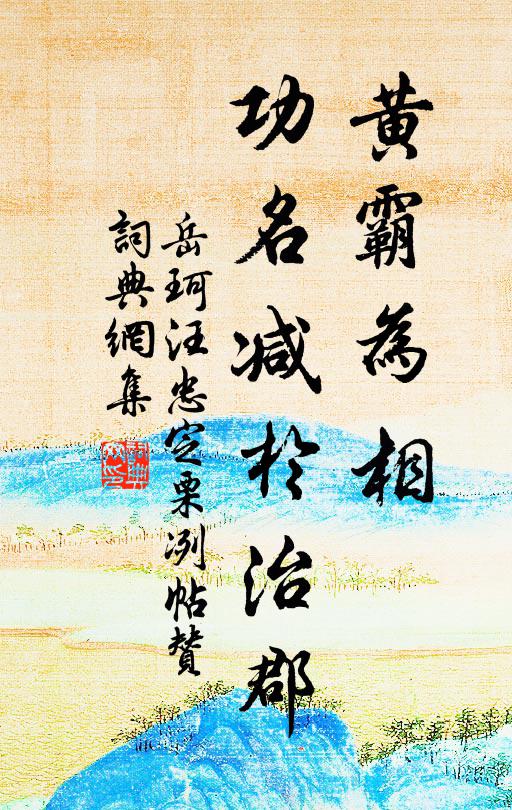 黃霸為相
功名减於治郡
岳珂汪忠定栗冽帖贊
詞典網集